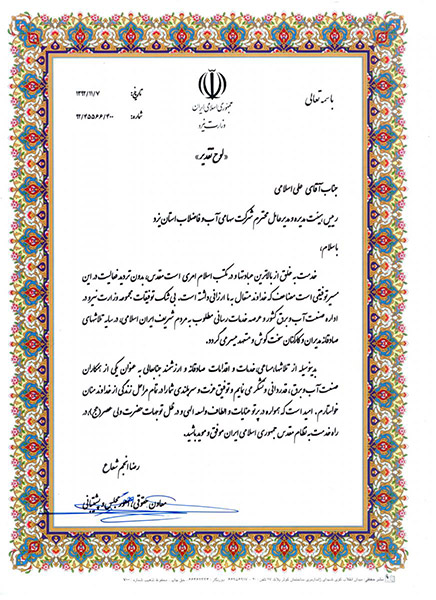 باسمه تعالی
جمهوری اسلامی ایران
وزارت نیرو
تاریخ: ۱۳۹۳/۱۱/۷
شماره: ۹۳/۴۵۵۶۶/۴۰۰
«لوح تقدیر»
جناب آقای علی اسلامی
رییس هیئت مدیره و مدیرعامل محترم شرکت سهامی آب و فاضلاب استان یزد
باسلام؛
خدمت به خلق از بالاترین عبادتها در مکتب اسلام امری است مقدس، بدون تردید فعالیت در این
مسیر توفیقی است مضاعف که خداوند متعال به ما ارزانی داشته است. بی‌شک توفیقات مجموعه وزارت نیرو در
اداره صنعت آب و برق کشور و عرصه خدمات رسانی مطلوب به مردم شریف ایران اسلامی، در سایه تلاشهای
صادقانه مدیران و کارکنان سخت کوش و متعهد میسر می گردد.
بدینوسیله از تلاشها، مساعی، خدمات و اقدامات صادقانه و ارزشمند جنابعالی به عنوان یکی از همکاران
صنعت آب و برق، قدردانی و تشکر می نمایم و توفیق عزت و سربلندی شما را در تمام مراحل زندگی از خداوند منان
خواستارم. امید است که همواره در پرتو عنایات و الطاف واسعه الهی و در ظل توجهات حضرت ولی عصر (عج) در
راه خدمت به نظام مقدس جمهوری اسلامی ایران موفق و موید باشید.
رضا انجم شعاع
معاون حقوقی، امور مجلس و پشتیبانی